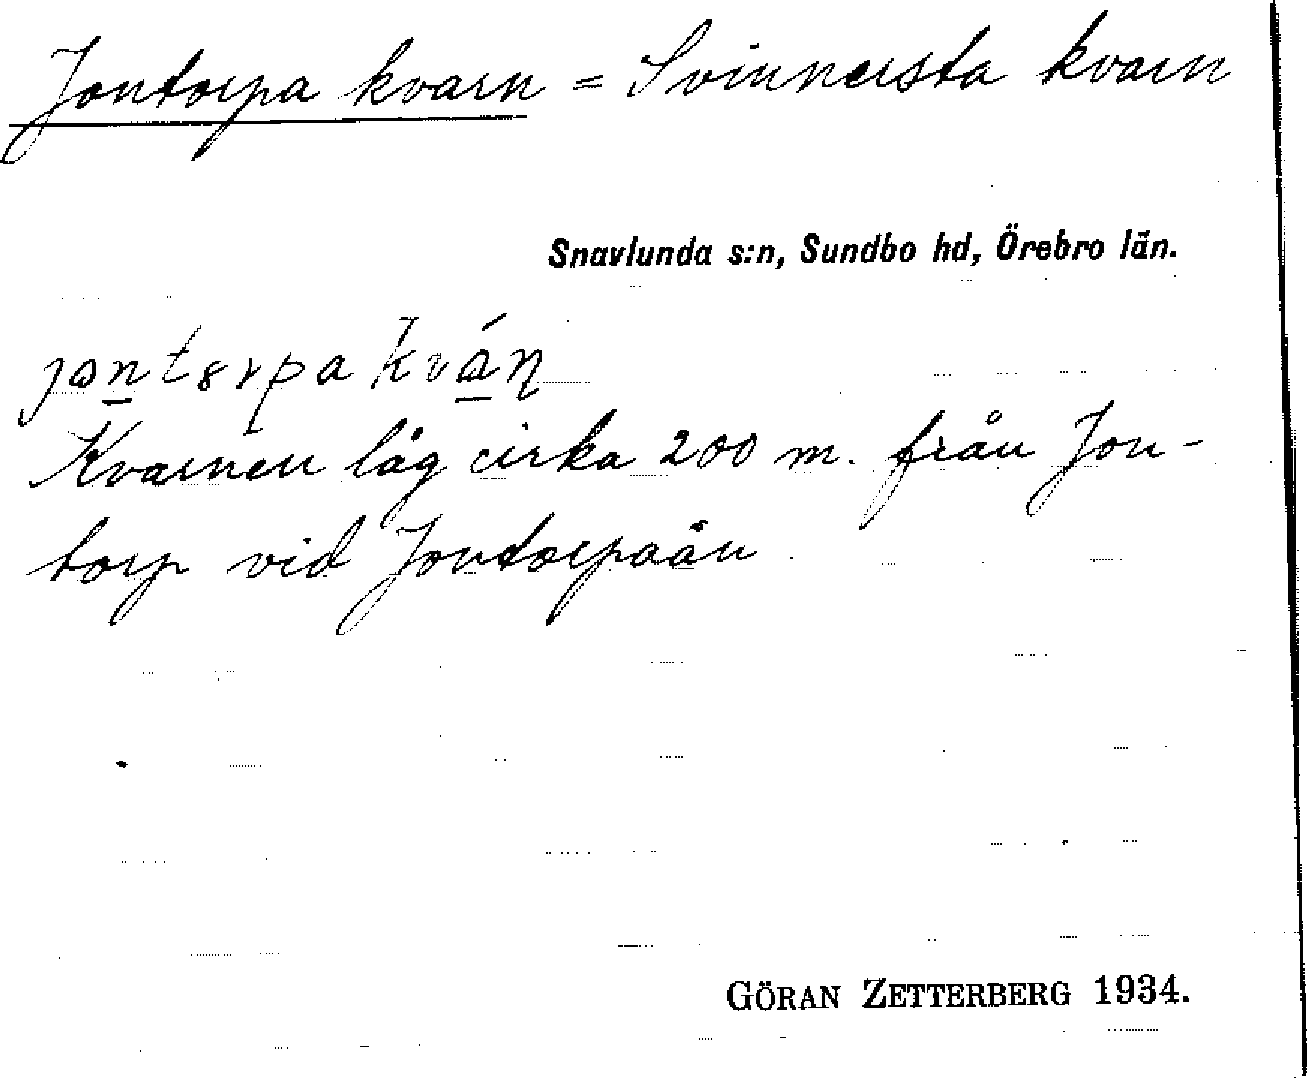 Jontorpa kvarn = Svinnersta kvarn
Snavlunda s:n, Sundbo hd, Örebro län.
Kvarnen låg cirka 200 m. från Jon-
torp vid Jontorpaån.
GÖRAN ZETTERBERG 1934.